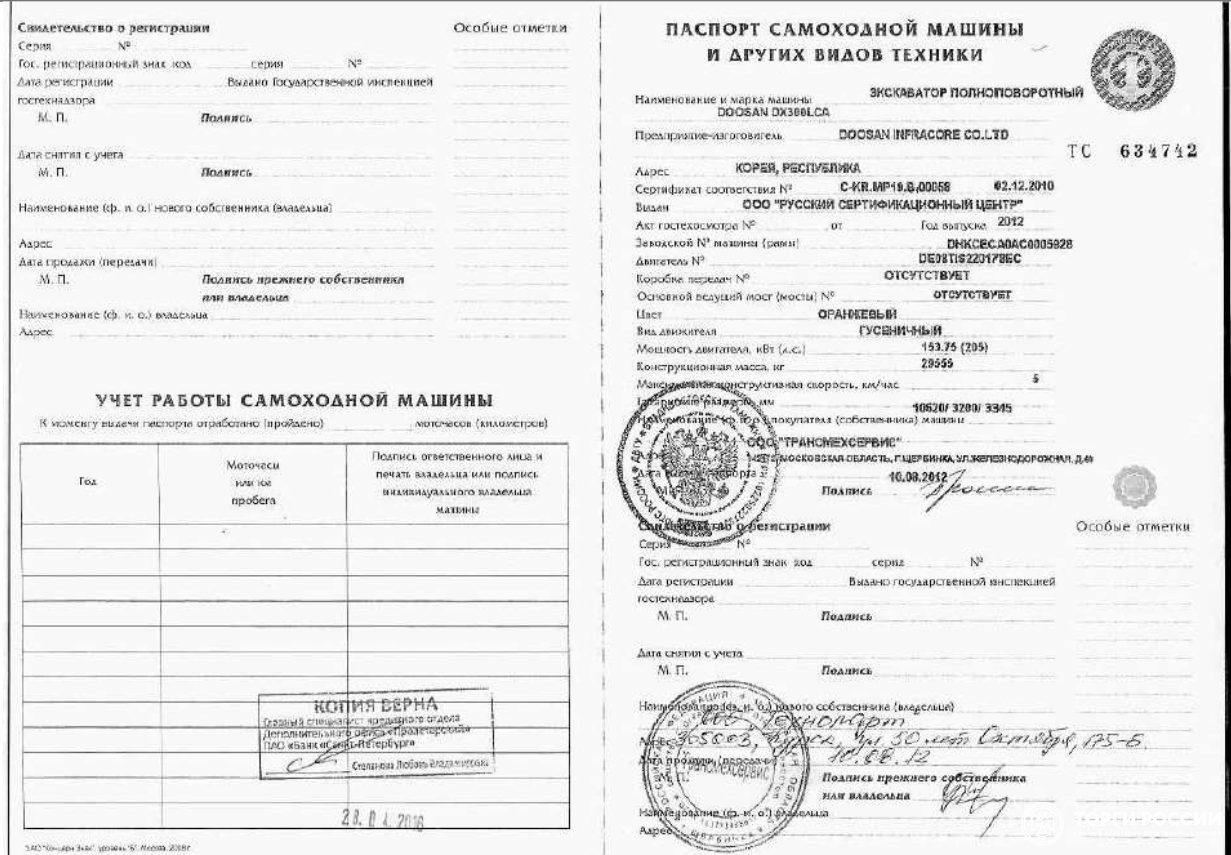 Свидетельство о регистрации
Особые отметки
Серия № 
Гос. регистрационный знак код серия №
Дата регистрации Выдано Государственной инспекцией
гостехнадзора
М. П. Подпись
Дата снятия с учета
М. П. Подпись
Наименование (ф. и. о.) нового собственника (владельца)
Адрес
Дата продажи (передачи)
М. П. Подпись прежнего собственника
или владельца
Наименование (ф. и. о.) владельца
Адрес
УЧЕТ РАБОТЫ САМОХОДНОЙ МАШИНЫ
К моменту выдачи паспорта отработано (пройдено) моточасов (километров)
Год
Моточасы
или км
пробега
Подпись ответственного лица и
печать владельца или подпись
индивидуального владельца
машины
КОПИЯ ВЕРНА
Главный специалист кредитного отдела
Дополнительного офиса «Пролетарский»
ПАО «Банк «Санкт-Петербург»
Степанова Любовь Владимировна
28. 04. 2016
ПАСПОРТ САМОХОДНОЙ МАШИНЫ
И ДРУГИХ ВИДОВ ТЕХНИКИ
Наименование и марка машины ЭКСКАВАТОР ПОЛНОПОВОРОТНЫЙ
DOOSAN DX300LCA
Предприятие-изготовитель DOOSAN INFRACORE CO.LTD
ТС 634742
Адрес КОРЕЯ, РЕСПУБЛИКА
Сертификат соответствия № C-KR.MP19.B.00058 02.12.2010
Выдан ООО "РУССКИЙ СЕРТИФИКАЦИОННЫЙ ЦЕНТР"
Акт гостехосмотра № от Год выпуска 2012
Заводской № машины (рамы) DHKCECA0AC0005928
Двигатель № DE08TIS220178EC
Коробка передач № ОТСУТСТВУЕТ
Основной ведущий мост (мосты) № ОТСУТСТВУЕТ
Цвет ОРАНЖЕВЫЙ
Вид движителя ГУСЕНИЧНЫЙ
Мощность двигателя, кВт (л.с.) 153.75 (205)
Конструкционная масса, кг 29555
Максимальная конструктивная скорость, км/час 5
Габаритные размеры, мм 10620/ 3200/ 3345
Наименование (ф. и. о.) покупателя (собственника) машины
ООО "ТРАНСМЕХСЕРВИС"
МОСКОВСКАЯ ОБЛАСТЬ, Г.ЩЕРБИНКА, УЛ.ЖЕЛЕЗНОДОРОЖНАЯ,
Дата выдачи паспорта 10.08.2012
М. П. Подпись
Свидетельство о регистрации
Особые отметки
Серия №
Гос. регистрационный знак код серия №
Дата регистрации Выдано государственной инспекцией
гостехнадзора
М. П. Подпись
Дата снятия с учета
М. П. Подпись
Наименование (ф. и. о.) нового собственника (владельца)
ООО Технопарт
Адрес 305003, Курск, ул. 50 лет Октября, 175-Б
Дата продажи (передачи) 10.08.12
М. П. Подпись прежнего собственника
или владельца
Трансмехсервис
Наименование (ф. и. о.) владельца
Адрес